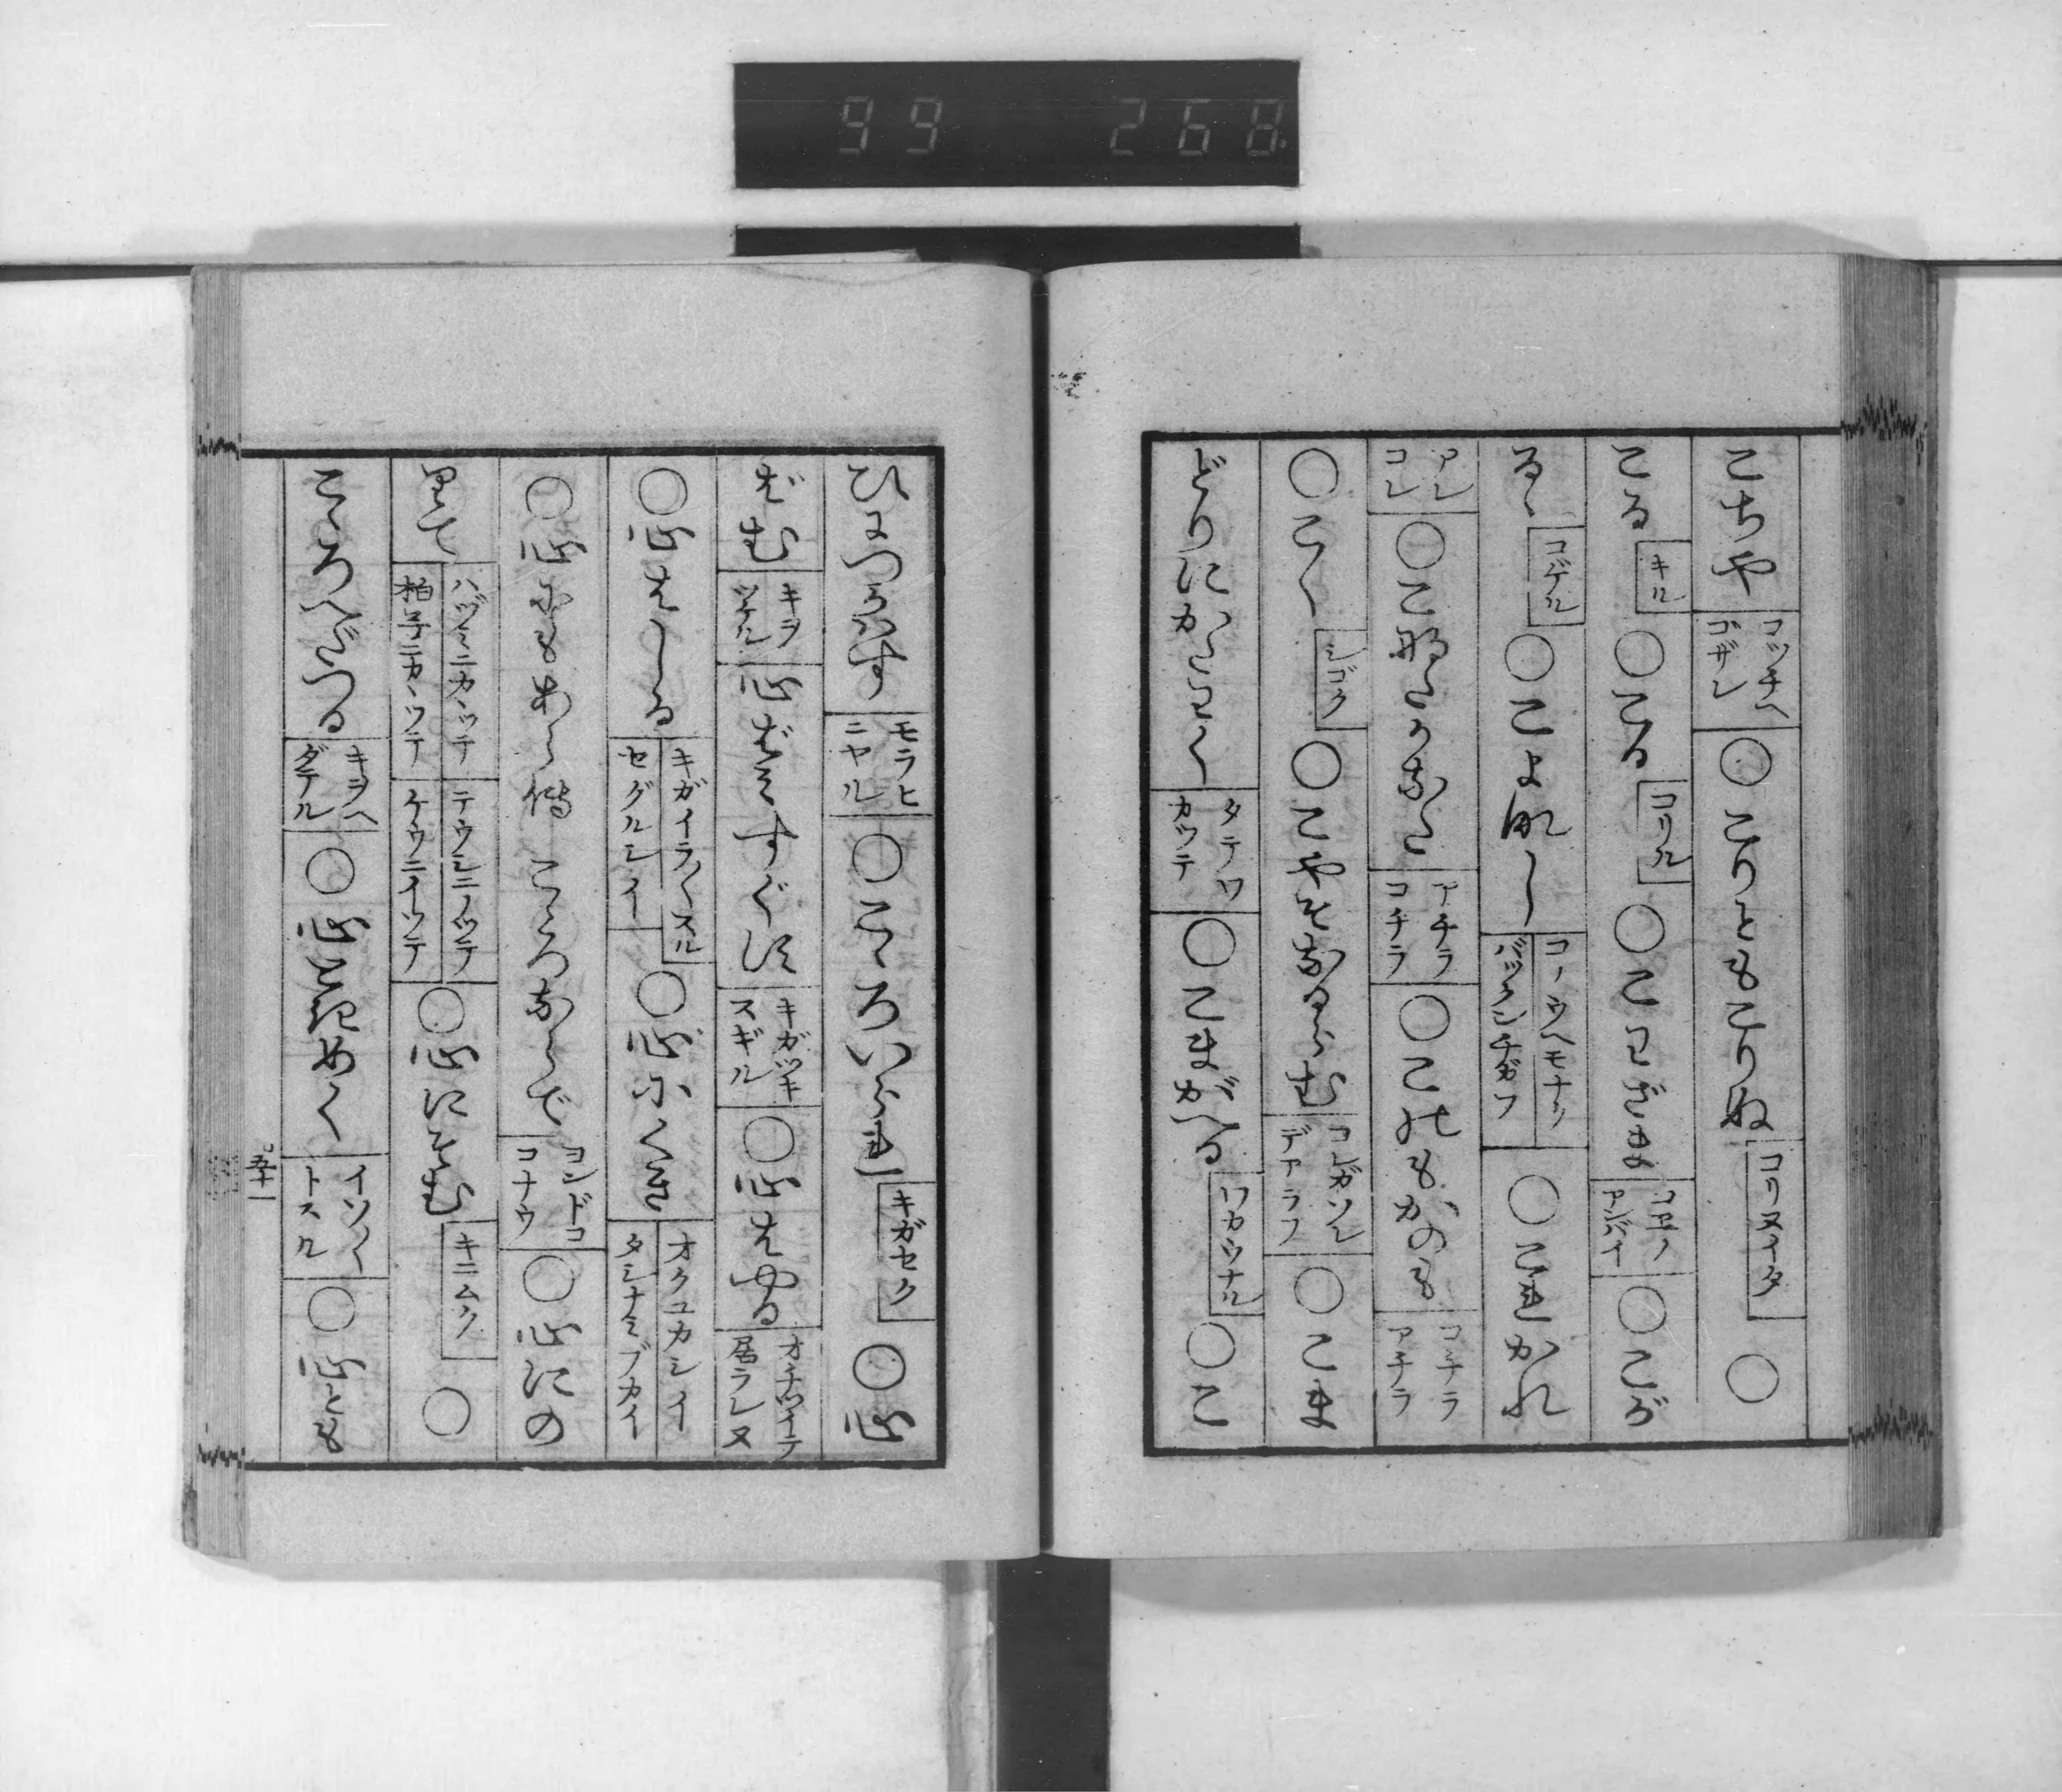 99 268
こちや コッチヘゴザレ ○こりともこりぬ コリヌイタ ○
こる キル ○こる コリル ○こわざま コワノアンバイ ○こが
るゝ コゲル ○こよなし コノウヘモナウ バックンチガフ ○これかれ
アレコレ ○こなたかなた アチラコチラ ○このもかのも コチラアチラ
○こく シゴク ○こやそなるらむ コレガソレデアラフ ○こま
どりにかたわく タテワカッテ ○こまがへる ワカウナル ○こ
ひよつかはす モラヒニヤル ○こゝろいられ キガセク ○心
ばむ キヲツケル 心ばみすぐす キガツキスギル ○心はやる オチツイテ居ラレヌ
○心はしる キガイライラスル セグルシイ ○心にくき オクユカシイ タシナミブカイ
○心にもあらで こゝろならで ヨンドコロナウ ○心にの
りて ハヅミニカヽッテ 拍子ニカヽッテ テウシニノッテ ケウニイッテ ○心にそむ キニムク ○
こゝろへだつる キヲヘダテル ○心ときめく イソ〳〵トスル ○心とも
五十一